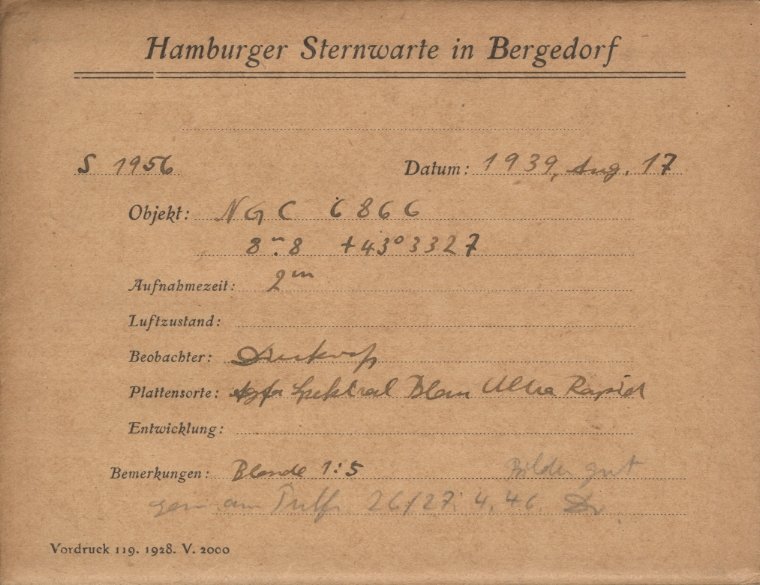 Hamburger Sternwarte in Bergedorf
S 1956 Datum: 1939, Aug. 17
Objekt: NGC 6866
8m.8 +43° 3327
Aufnahmezeit: 2m
Luftzustand:
Beobachter: Dieckvoß
Plattensorte: Agfa Spektral Blau Ultra Rapid
Entwicklung:
Bemerkungen: Blende 1:5 Bilder gut
gem. am 26/27. 4. 46. Dv
Vordruck 119. 1928. V. 2000